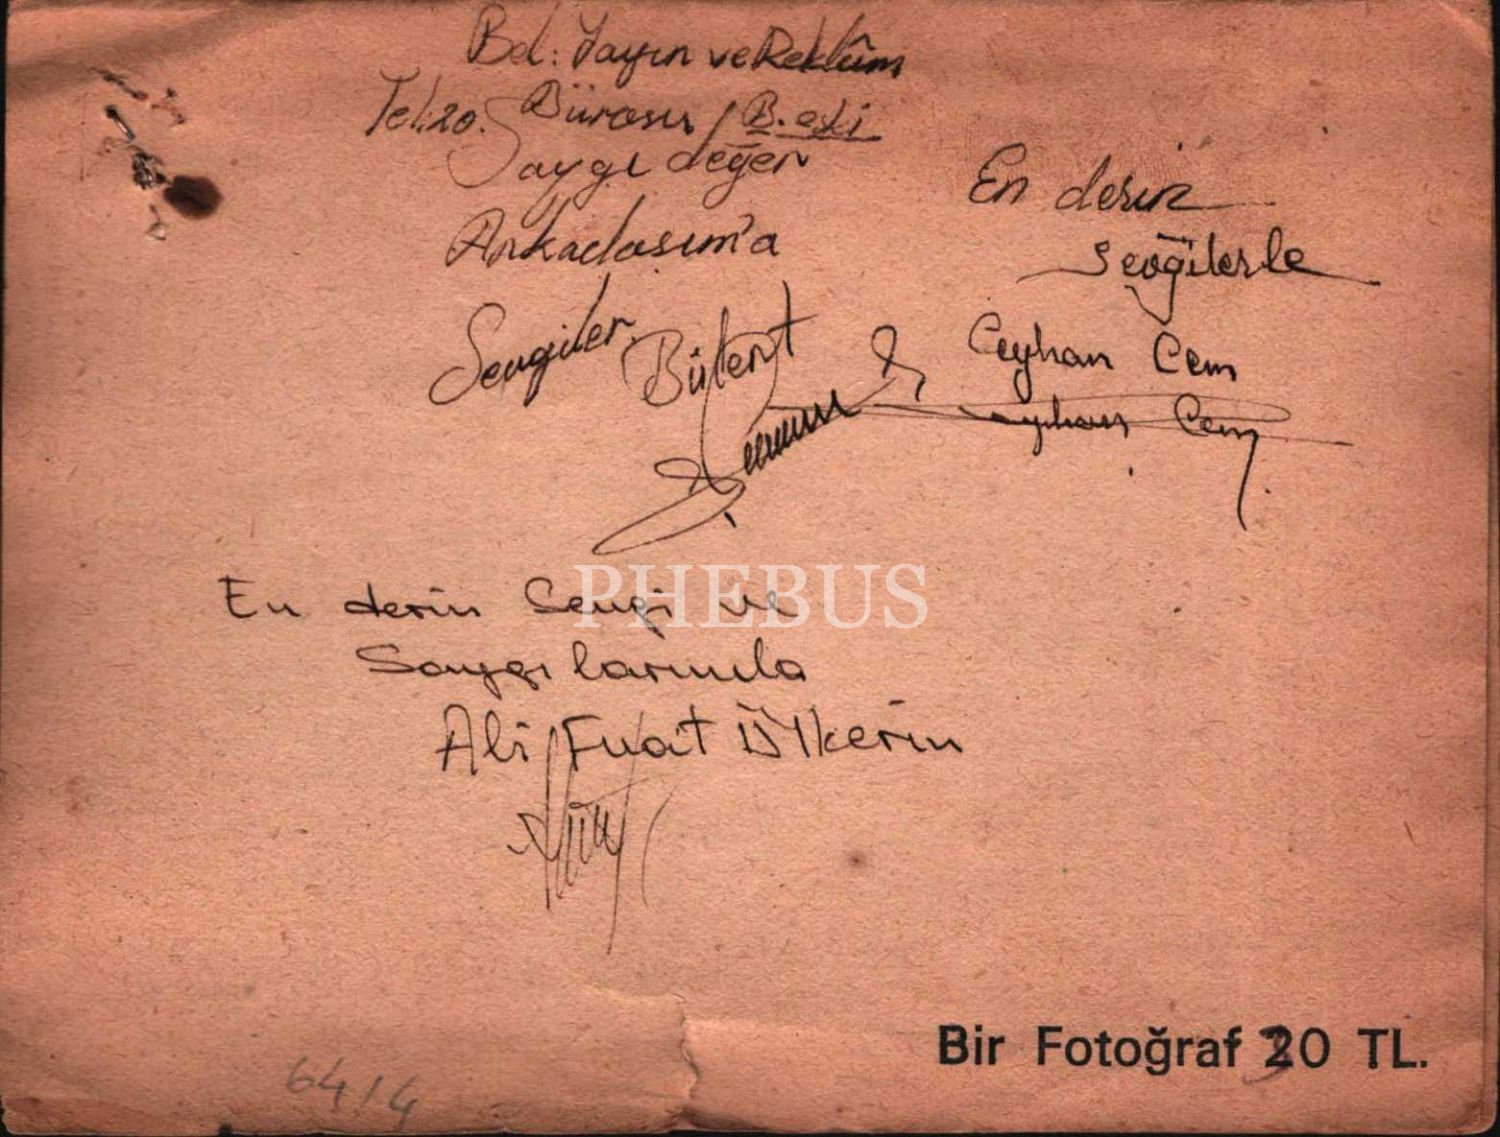 Bel: Yayın ve Reklâm
Tel: 20. Bürosu / B. eski
Saygı değer
Arkadaşım'a
Sevgiler Bülent
En derin
sevgilerle
Ceyhan Cem
Ceyhan Cem
PHEBUS
En derin Sevgi ve
Saygılarımla
Ali Fuat Ülkerin
Bir Fotoğraf 30 TL.
6414